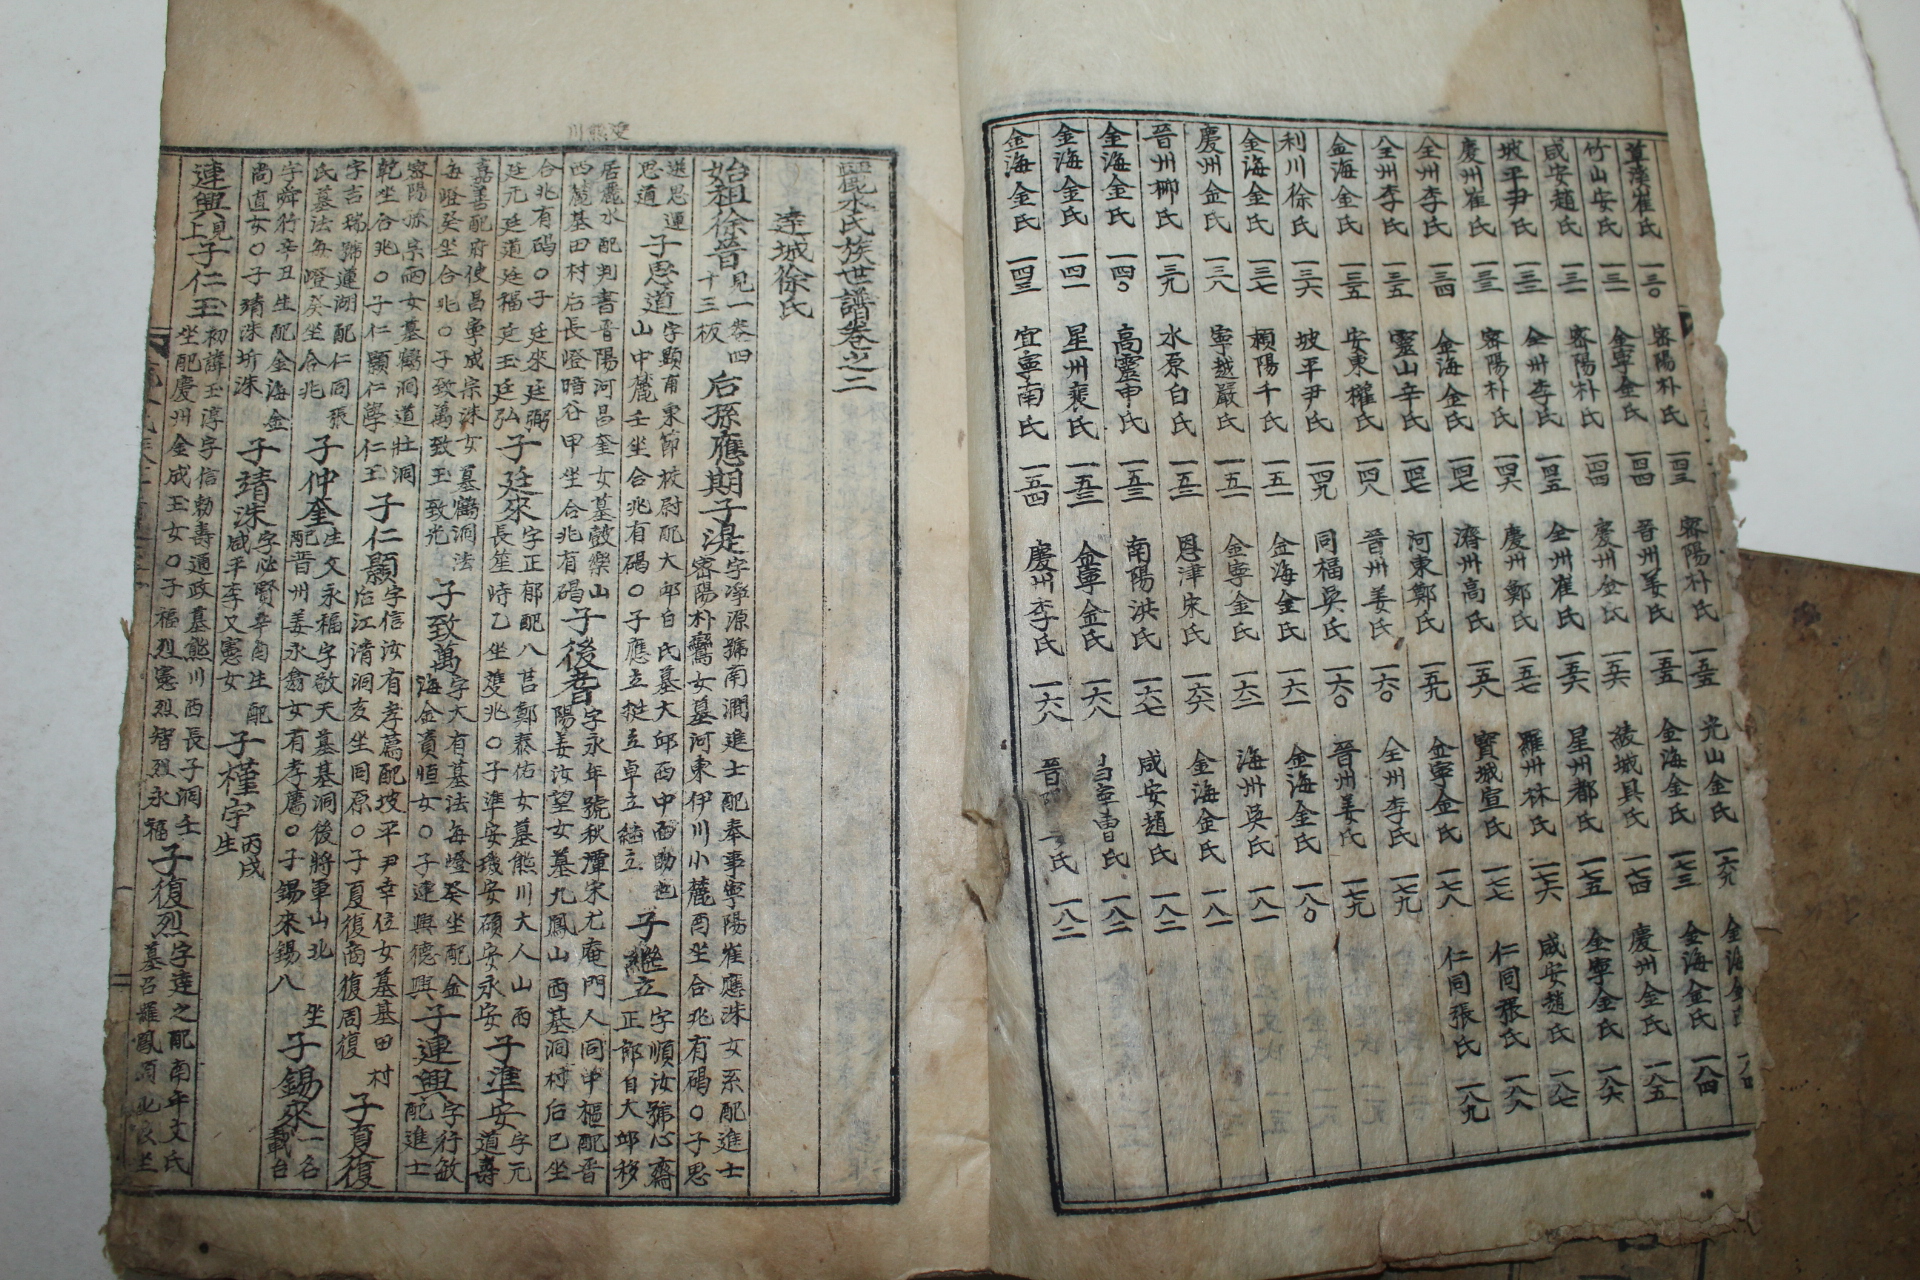 草溪崔氏 一三〇
竹山安氏 一三一
咸安趙氏 一三二
坡平尹氏 一三二
慶州崔氏 一三三
全州李氏 一三四
全州李氏 一三五
金海金氏 一三五
利川徐氏 一三六
金海金氏 一三七
慶州金氏 一三八
晉州柳氏 一三九
金海金氏 一四〇
金海金氏 一四一
金海金氏 一四三
密陽朴氏 一四三
金寧金氏 一四四
密陽朴氏 一四四
全州李氏 一四五
密陽朴氏 一四六
金海金氏 一四七
靈山辛氏 一四七
安東權氏 一四八
坡平尹氏 一四九
潁陽千氏 一五一
寧越嚴氏 一五一
水原白氏 一五二
高靈申氏 一五三
星州裵氏 一五三
宜寧南氏 一五四
密陽朴氏 一五五
晉州姜氏 一五五
慶州金氏 一五六
全州崔氏 一五六
慶州鄭氏 一五七
濟州高氏 一五八
河東鄭氏 一五九
晉州姜氏 一六〇
同福吳氏 一六〇
金海金氏 一六一
金寧金氏 一六二
恩津宋氏 一六六
南陽洪氏 一六七
金寧金氏 一六八
慶州李氏 一六八
光山金氏 一六九
金海金氏 一七三
綾城具氏 一七四
星州都氏 一七五
羅州林氏 一七六
寶城宣氏 一七七
金寧金氏 一七八
全州李氏 一七九
晉州姜氏 一七九
金海金氏 一八〇
海州吳氏 一八一
金海金氏 一八一
咸安趙氏 一八二
昌寧曺氏 一八二
晉 氏 一八二
金海金
金海金氏 一八四
慶州金氏 一八五
金寧金氏 一八六
咸安趙氏 一八七
仁同張氏 一八八
仁同張氏 一八九
氏族世譜卷之二
達城徐氏
始祖徐晉 見一卷四十三板 后孫應期子湜 字凈源號南澗進士配奉事寧陽崔應洙女系配進士密陽朴鸞女墓河東伊川小麓酉坐合兆有碣〇子思
選思運思道 子思道 字顯甫東節校尉配大邱白氏墓大邱西中西面山中麓壬坐合兆有碣〇子應立挺立卓立繼立 子繼立 字順汝號心齋正郎自大邱移
居麗水配判書晉陽河昌奎女墓鼓樂山西麓基田村后長嶝暗谷甲坐合兆有碣 子後耆 字永年號秋潭宋尤庵門人同中樞配晉陽姜汝望女墓九鳳山西基洞村后巳坐
合兆有碣〇子廷來廷弼廷元廷道廷福廷玉廷弘 子廷來 字正郁配八莒鄭泰佑女墓熊川大人山西長笙峙乙坐雙兆〇子準安璣安碩安永安 子準安 字元道壽
嘉善配府使昌寧成宗洙女墓鶴洞法每嶝癸坐合兆〇子致萬致玉致光 子致萬 字大有墓法每嶝癸坐配金海金賁恒女〇子連興德興 子連興 字行敏配進士
密陽孫宗兩女墓鶴洞道壯洞乾坐合兆〇子仁顯仁學仁玉 子仁顯 字信汝有孝薦配坡平尹幸位女墓基田村后江淸洞亥坐同原〇子夏復商復周復 子夏復
字吉瑞號蓮湖配仁同張氏墓法每嶝癸坐合兆 子仲奎 生父永福字敬天墓基洞後將軍山北坐配晋州姜永翕女有孝薦〇子錫來錫八 子錫來 一名載台
字舜行辛丑生配金海金尚直女〇子靖洙圻洙 子靖洙 字泌賢辛酉生配咸平李又憲女 子槿宇 丙戌生
連興 見上 子仁玉 初諱玉淳字信勅壽通政墓熊川西長子洞壬坐配慶州金成玉女〇子福烈憲烈智烈永福 子復烈 字達之配南年文氏墓召羅鳳